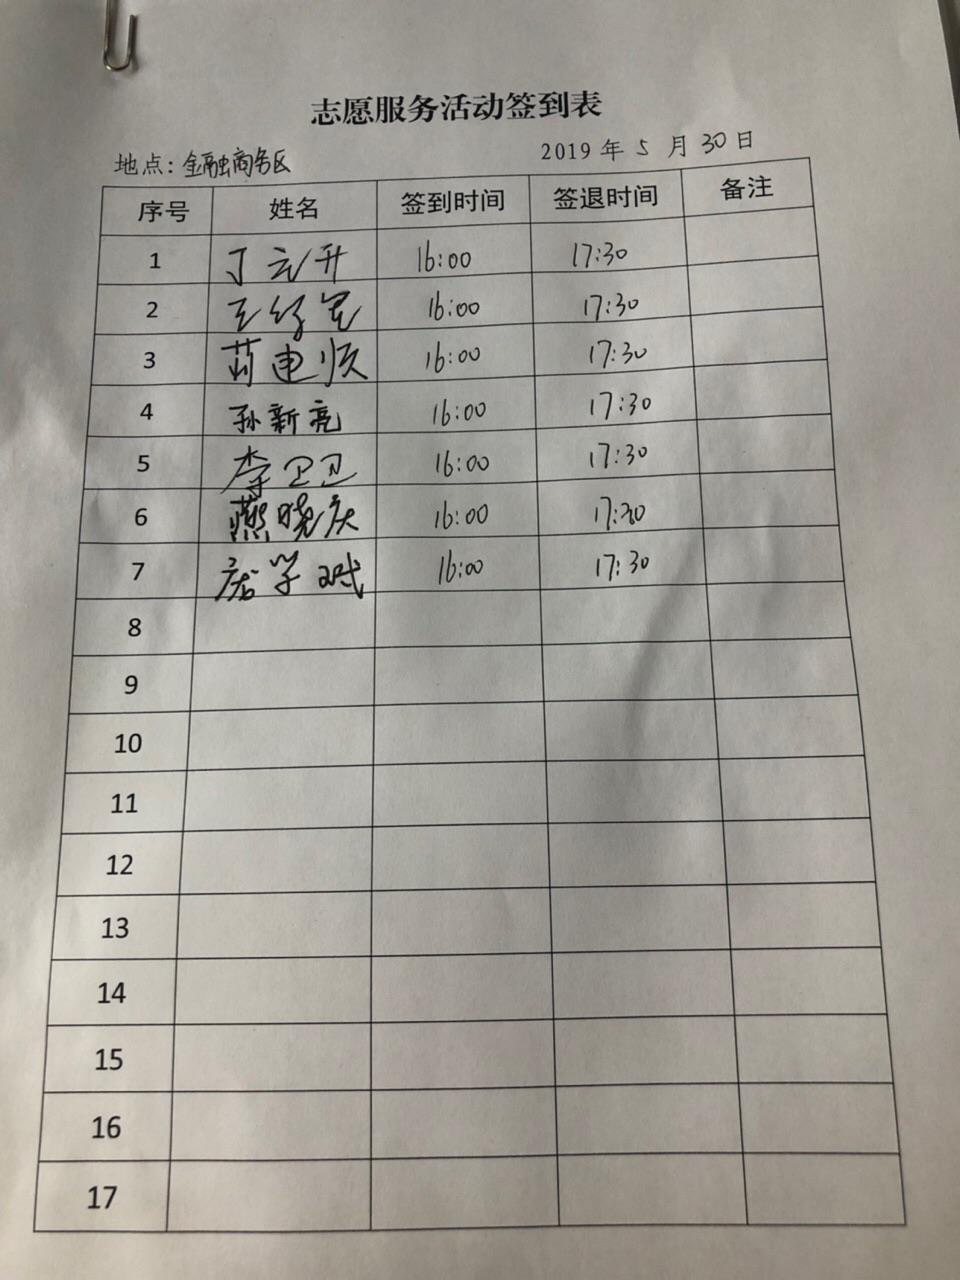 志愿服务活动签到表
地点：金融商务区 2019 年 5 月 30 日
序号 姓名 签到时间 签退时间 备注
1 丁云升 16:00 17:30
2 王 16:00 17:30
3 16:00 17:30
4 孙新亮 16:00 17:30
5 李卫卫 16:00 17:30
6 燕晓庆 16:00 17:30
7 学斌 16:00 17:30
8
9
10
11
12
13
14
15
16
17